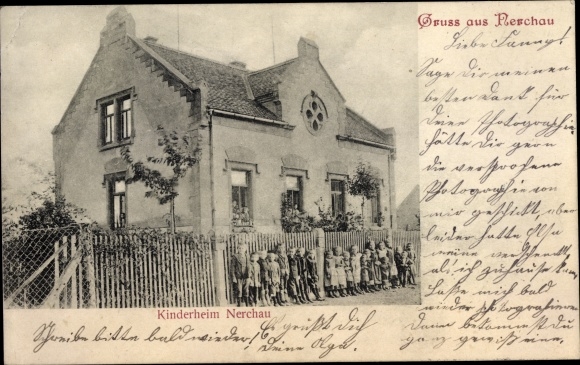 Gruss aus Nerchau
Liebe Fanny!
Sage Dir meinen
besten Dank für
Deine Photographie
hätte Dir gern
die versprochene
Photographie von
mir geschickt, aber
leider hatte Elsa
meine verschenkt
als ich zuhause
Lasse mich bald
wieder photografieren
dann bekommst du
ganz gewiß eine.
Kinderheim Nerchau
Schreibe bitte bald wieder! Es grüßt Dich
Deine Olga.